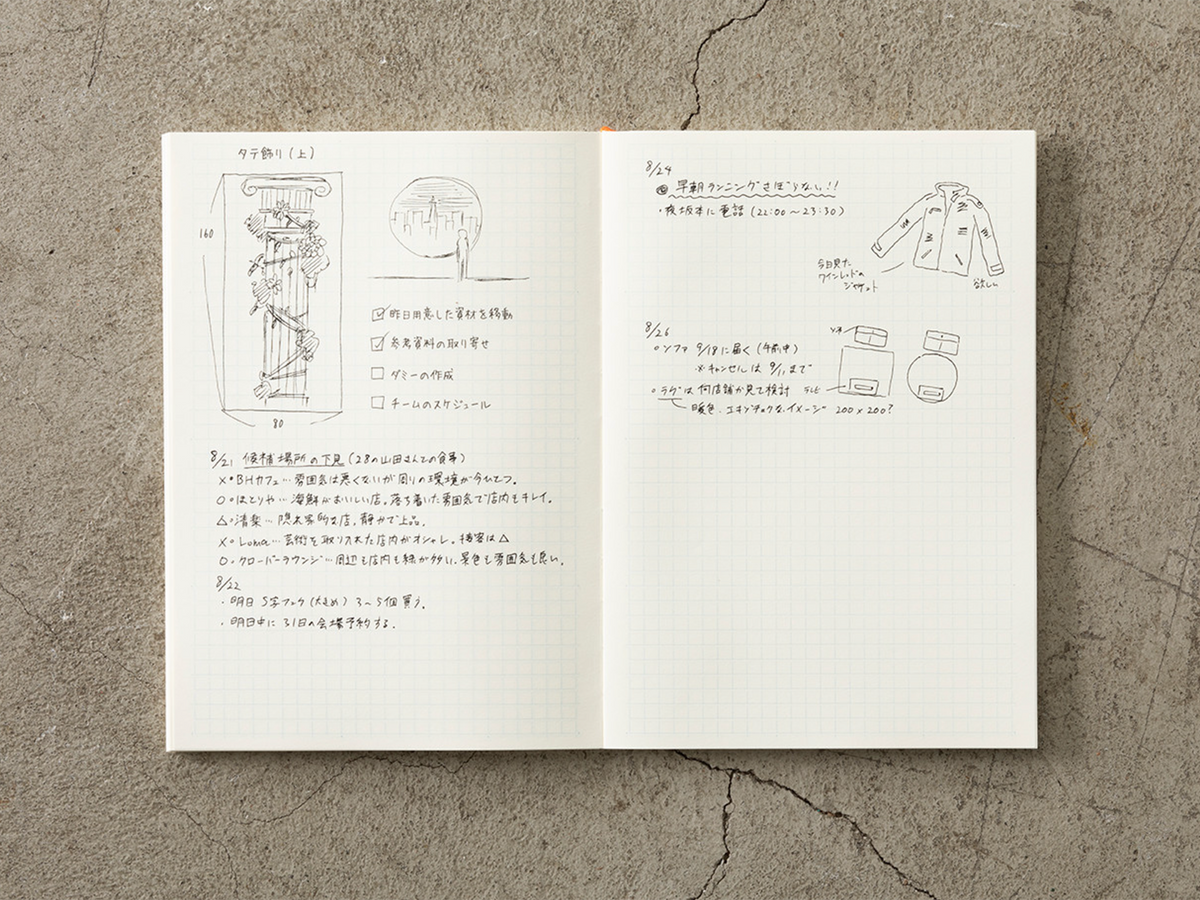 タテ飾り(上)
160
80
☑昨日用意した資材を移動
☑参考資料の取り寄せ
□ダミーの作成
□チームのスケジュール
8/21 候補場所の下見(28の山田さんとの食事)
×・BHカフェ…雰囲気は悪くないが周りの環境が今ひとつ。
○・はとりや…海鮮がおいしい店。落ち着いた雰囲気で店内もキレイ。
△・清楽…隠れ家的な店。静かで上品。
×・Loma…芸術を取り入れた店内がオシャレ。接客は△
○・クローバーラウンジ…周辺も店内も緑が多い。景色も雰囲気も良い。
8/22
・明日 S字フック(大きめ)3〜5個買う。
・明日中に31日の会場予約する。
8/24
早朝ランニングさぼらない!!
・夜坂本に電話(22:00〜23:30)
今日見た
ワインレッドの
ジャケット
欲しい
8/26
○ソファ 9/18に届く(午前中)
※キャンセルは9/11まで
○ラグは何店舗か見て検討
暖色、エキゾチックなイメージ 200×200?
ソファ
テレビ